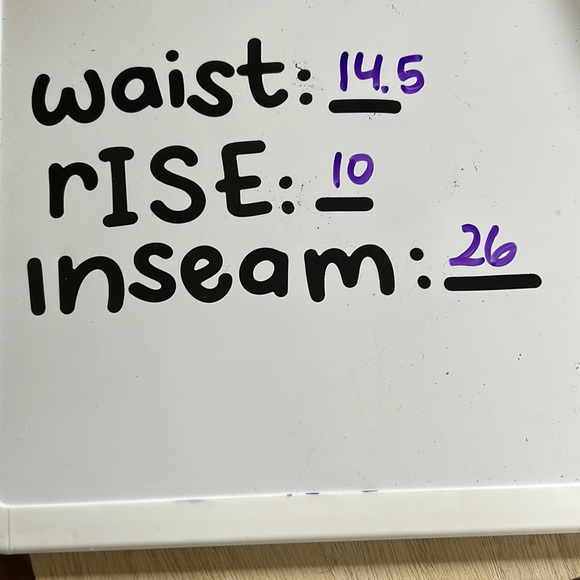 waist: 14.5
rISE: 10
Inseam: 26